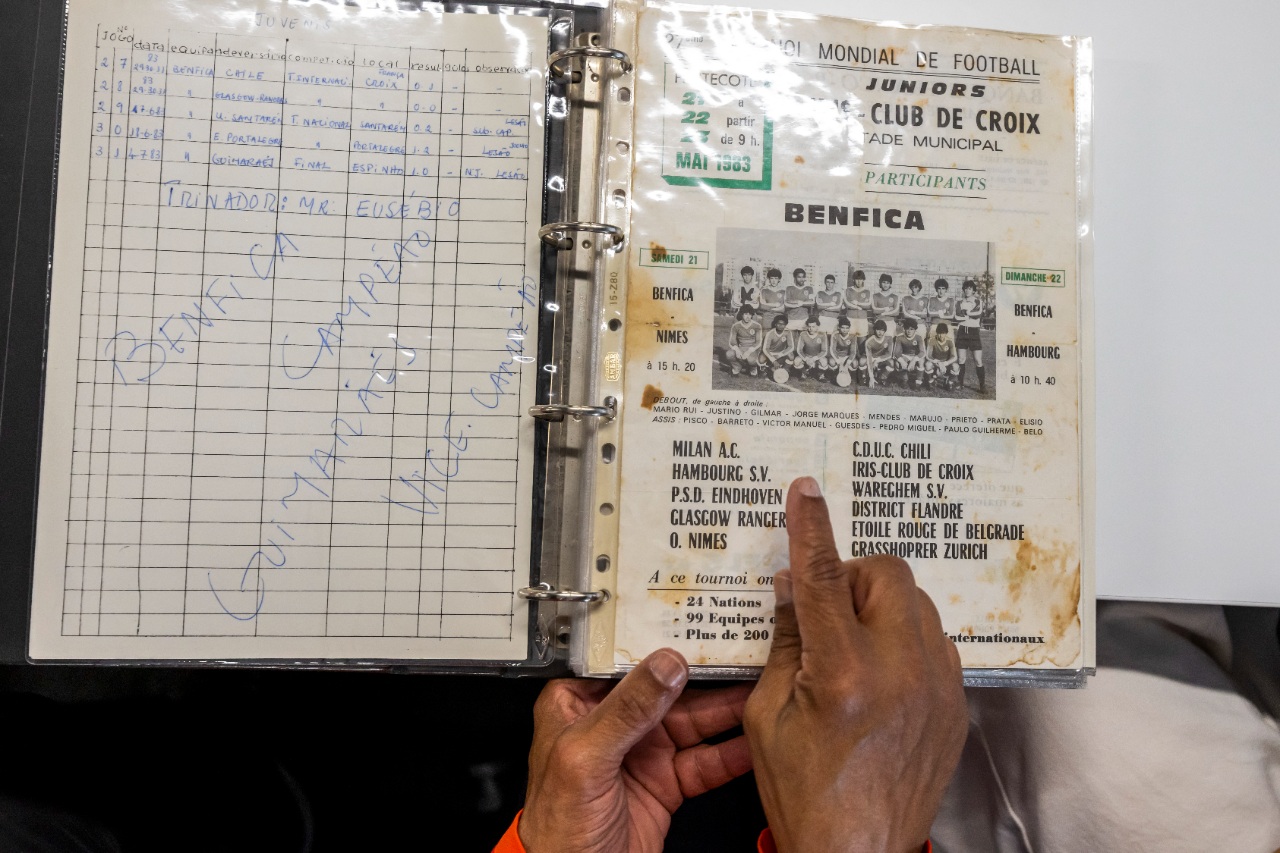 JUVENIS
JOGO Nº data equipa adversário competição Local resul golos observaç
27 83 BENFICA CHILE T.INTERNACI. CROIX 0.1 - -
28 83 " GLASGOW-RANGERS " " 0.0 - -
29 " U. SANTARÉM T. NACIONAL SANTARÉM 0.2 - SUB. CAP. LESÃO
30 18-6-83 " E. PORTALEGRE " PORTALEGRE 1-2 - LESÃO
31 4783 " GUIMARAES FINAL ESPINHO 1.0 - NJ. LESÃO
TRINADOR: MR. EUSÉBIO
BENFICA CAMPEÃO
GUIMARAES VICE. CAMPEÃO
MONDIAL DE FOOTBALL
JUNIORS
CLUB DE CROIX
MUNICIPAL
21 à
22 partir
de 9 h.
MAI 1983
PARTICIPANTS
BENFICA
SAMEDI 21
BENFICA
-
NIMES
à 15 h. 20
DIMANCHE 22
BENFICA
-
HAMBOURG
à 10 h. 40
DEBOUT, de gauche à droite :
MARIO RUI - JUSTINO - GILMAR - JORGE MARQUES - MENDES - MARUJO - PRIETO - PRATA - ELISIO
ASSIS : PISCO - BARRETO - VICTOR MANUEL - GUESDES - PEDRO MIGUEL - PAULO GUILHERME - BELO
MILAN A.C.
HAMBOURG S.V.
P.S.D. EINDHOVEN
GLASGOW RANGER
O. NIMES
C.D.U.C. CHILI
IRIS-CLUB DE CROIX
WAREGHEM S.V.
DISTRICT FLANDRE
ETOILE ROUGE DE BELGRADE
GRASSHOPRER ZURICH
A ce tournoi on
- 24 Nations
- 99 Equipes
- Plus de 200 internationaux